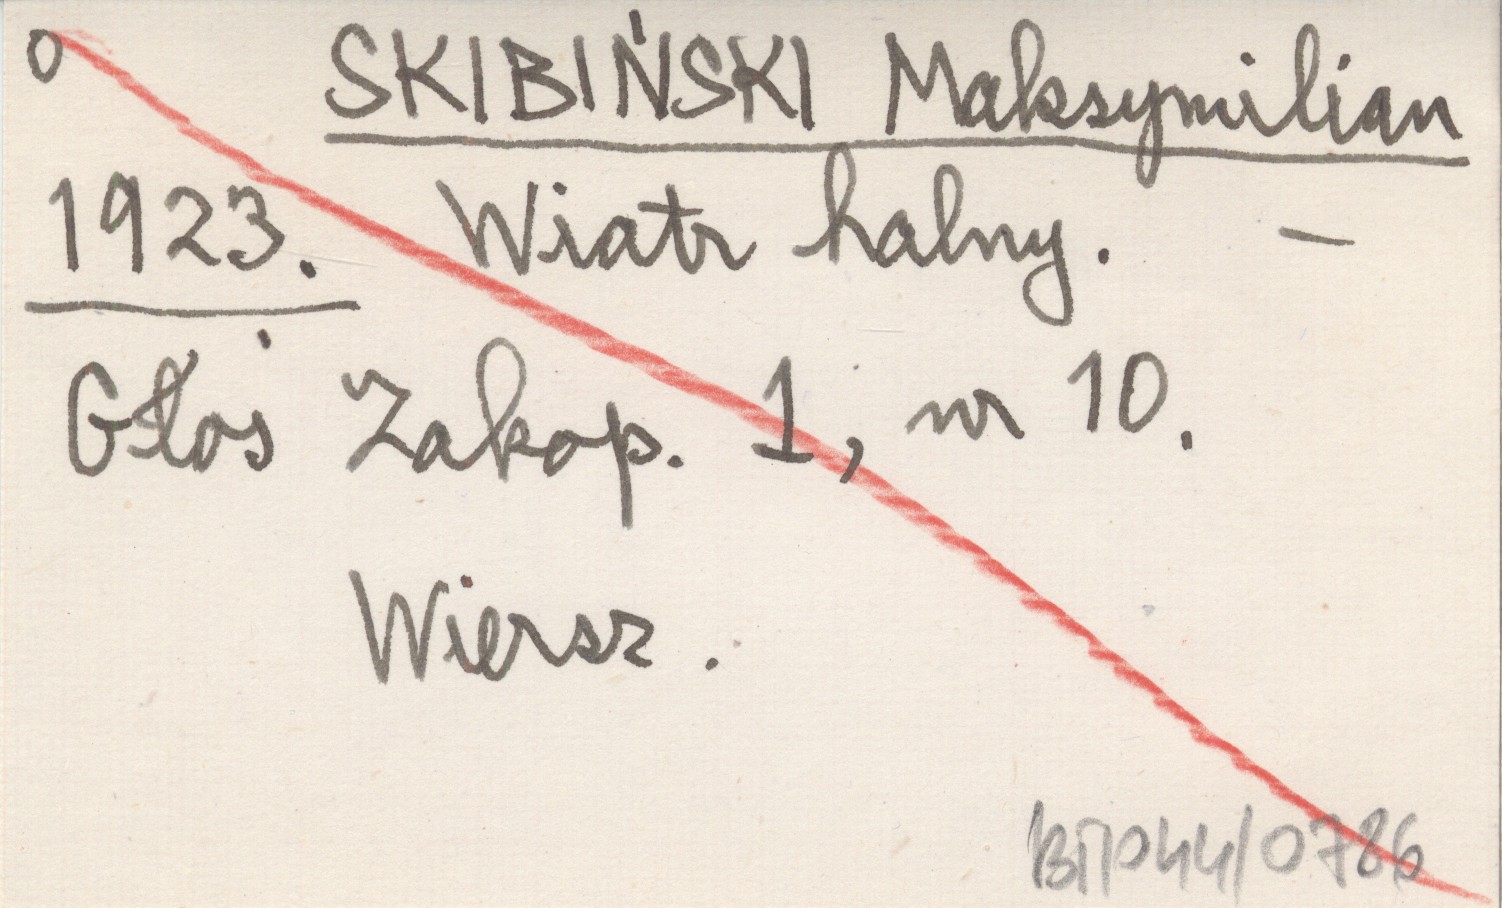 0 SKIBIŃSKI Maksymilian
1923. Wiatr halny. —
Głoś Zakop. 1, nr 10.
Wiersz.
BTP044/0786